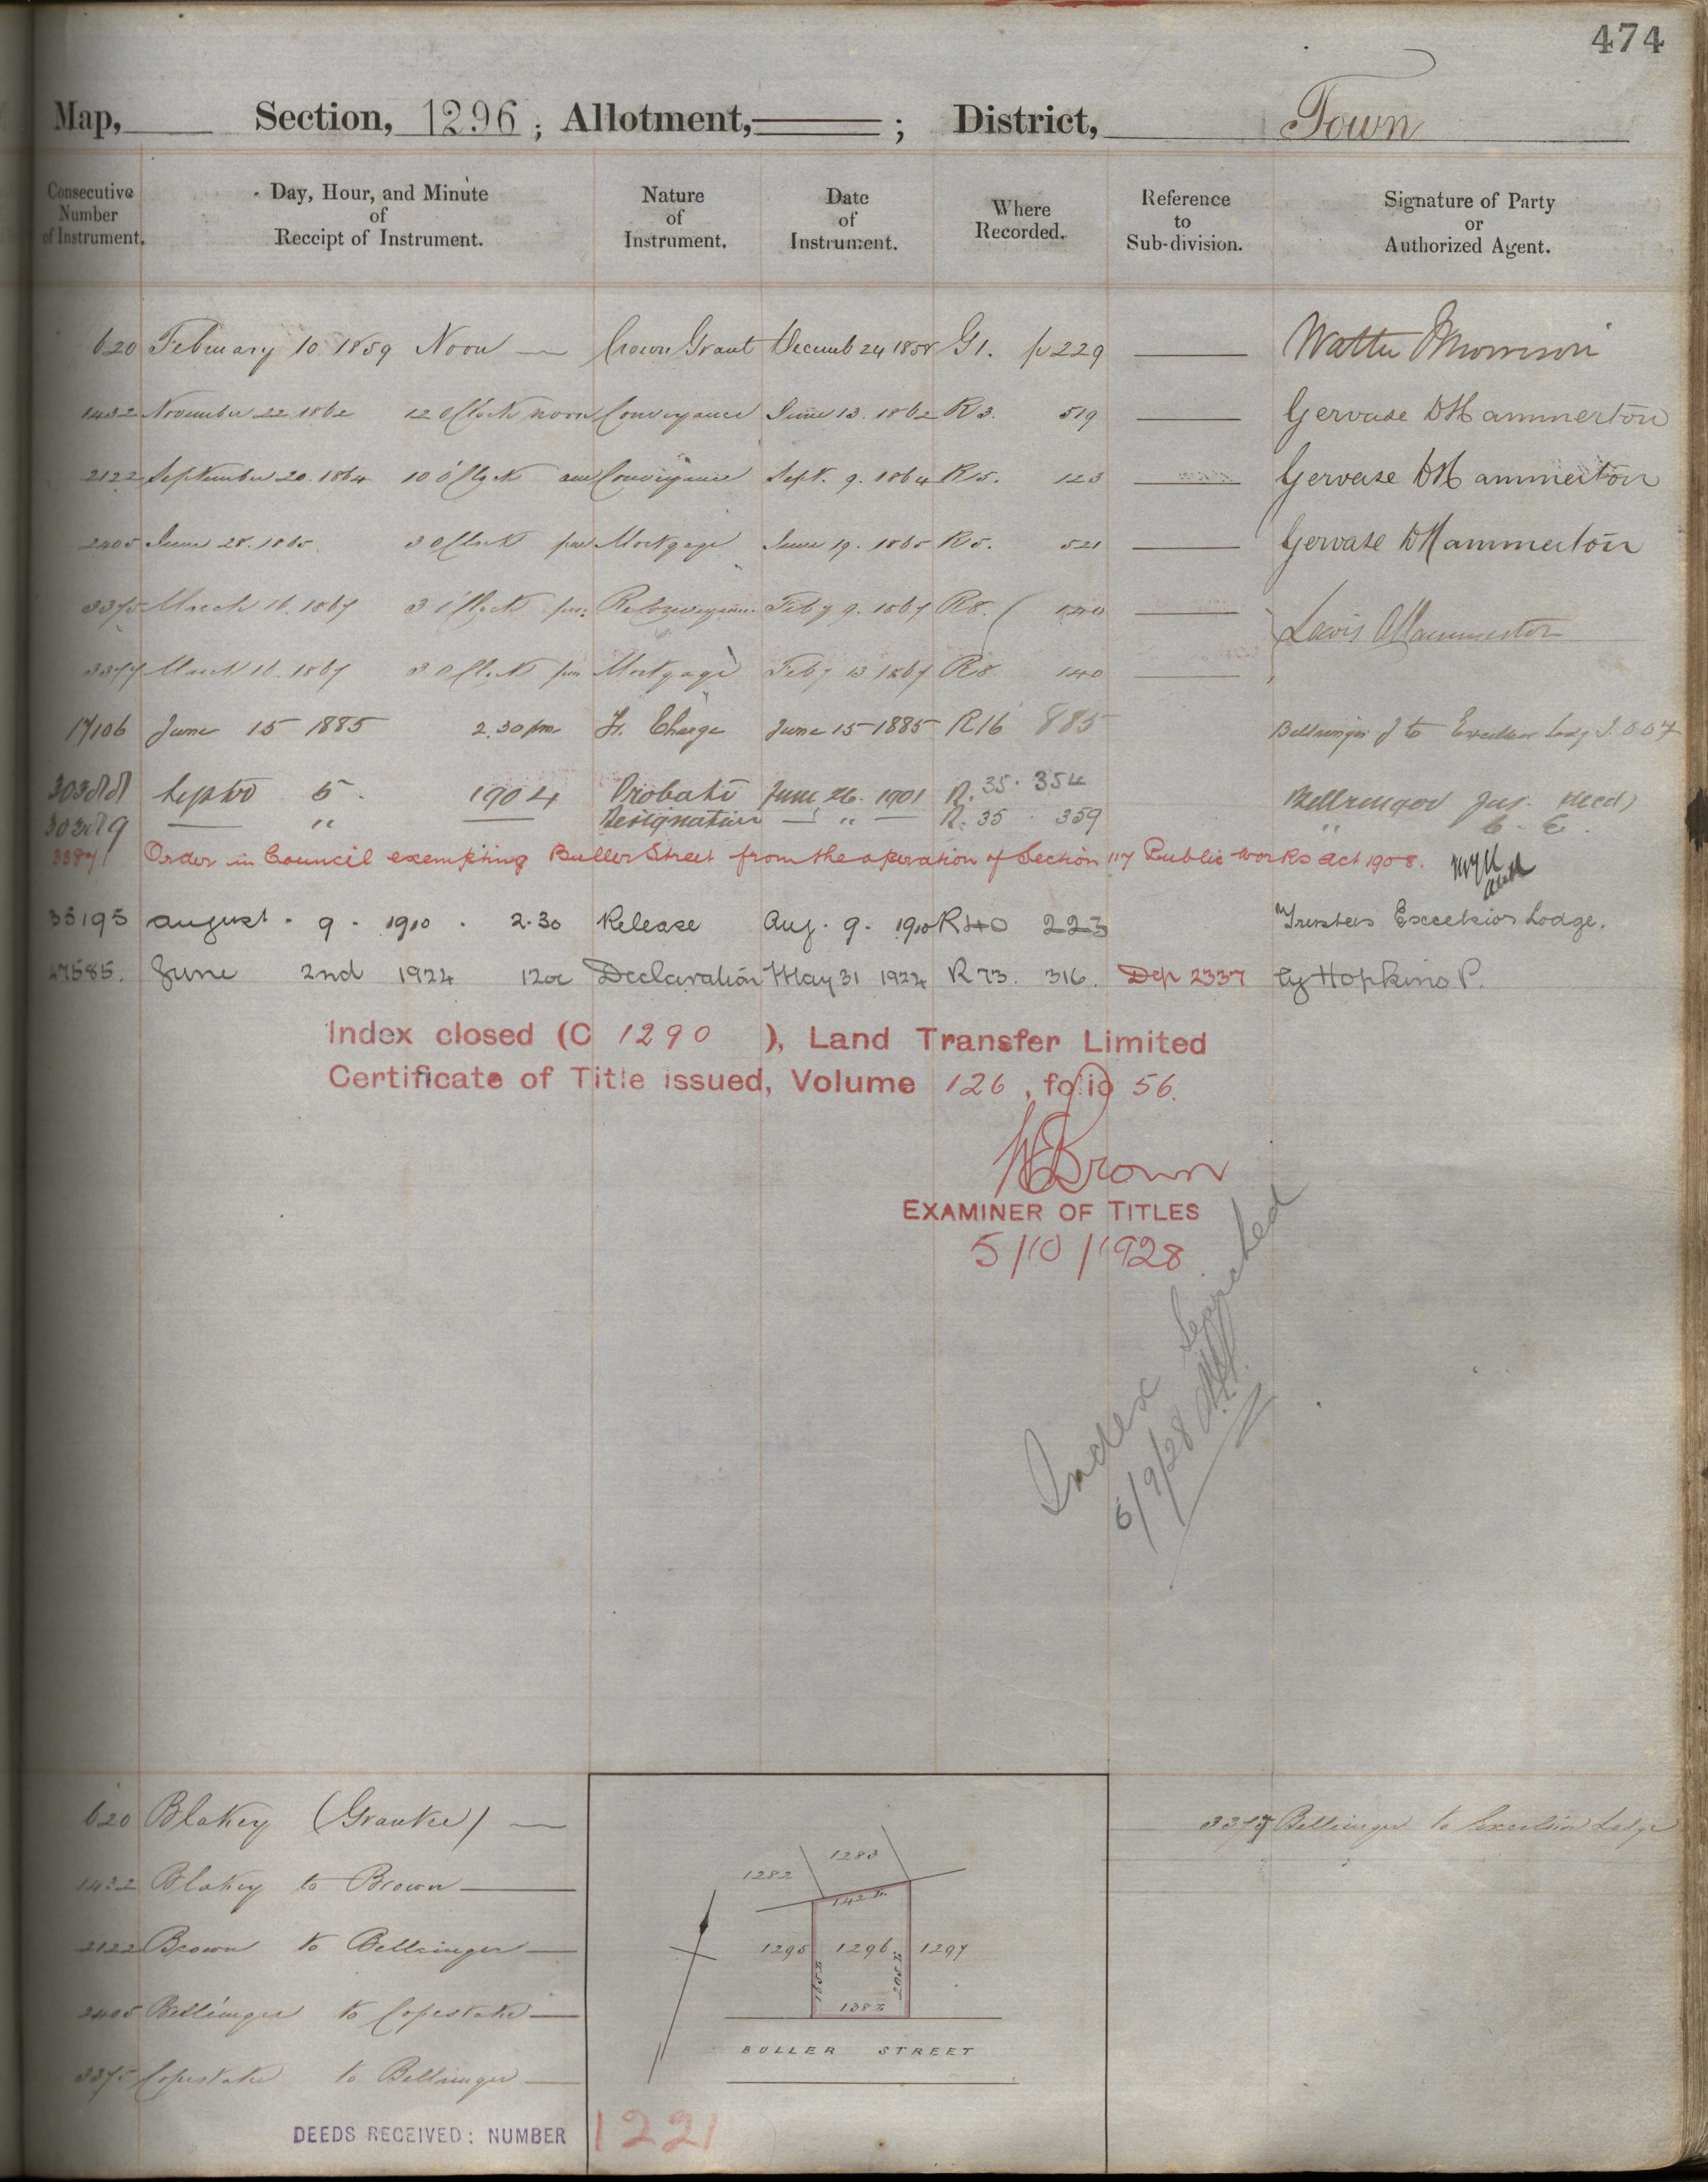 474
Map, Section, 1296 ; Allotment, ; District, Town
Consecutive Number of Instrument.
Day, Hour, and Minute of Receipt of Instrument.
Nature of Instrument.
Date of Instrument.
Where Recorded.
Reference to Sub-division.
Signature of Party or Authorized Agent.
620 February 10 1859 Noon Crown Grant Decemb 24 1858 G1. p 229 Walter Morrison
1432 November 22 1862 12 O'Clock noon Conveyance June 13. 1862 R3. 519 Gervase D Hammerton
2122 September 20. 1864 10 O'Clock am Conveyance Sept. 9. 1864 R5. 123 Gervase D Hammerton
2405 June 28. 1865. 3 O'Clock pm Mortgage June 19. 1865 R5. 521 Gervase D Hammerton
3375 March 16. 1867 3 O'Clock pm. Reconveyance Feby 9. 1867 R8. 140 Lewis
3377 March 16. 1867 3 O'Clock pm Mortgage Feby 13. 1867 R8. 140
17106 June 15 1885 2.30 pm Fr. Charge June 15 1885 R16 885 Bellringer J to Excelsior Lodge I.O.O.F
30388 Septbr 5. 1904 Probate June 26. 1901 R. 35. 354 Bellringer Jas. decd)
30389 " Resignation " R. 35. 359 " C. E.
3387 Order in Council exempting Buller Street from the operation of Section 117 Public Works Act 1908.
35195 August. 9. 1910. 2.30 Release Aug. 9. 1910 R40 223 Trustees Excelsior Lodge.
47585. June 2nd 1924 12oc Declaration May 31 1924 R73. 316. Dep 2337 Cy Hopkins P.
Index closed (C 1290 ), Land Transfer Limited
Certificate of Title issued, Volume 126, folio 56.
Brown
EXAMINER OF TITLES
5/10/1928
Index Searched
6/9/28
620 Blakey (Grantee)
1432 Blakey to Brown
2122 Brown to Bellringer
2405 Bellringer to Copestake
3375 Copestake to Bellringer
3377 Bellringer to Excelsior Lodge
1283
1282
142
1295 1296 1297
185
205
138
BULLER STREET
DEEDS RECEIVED: NUMBER 1221